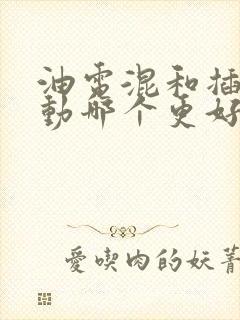 油電混和插
動哪个更好
愛喫肉的妖菁